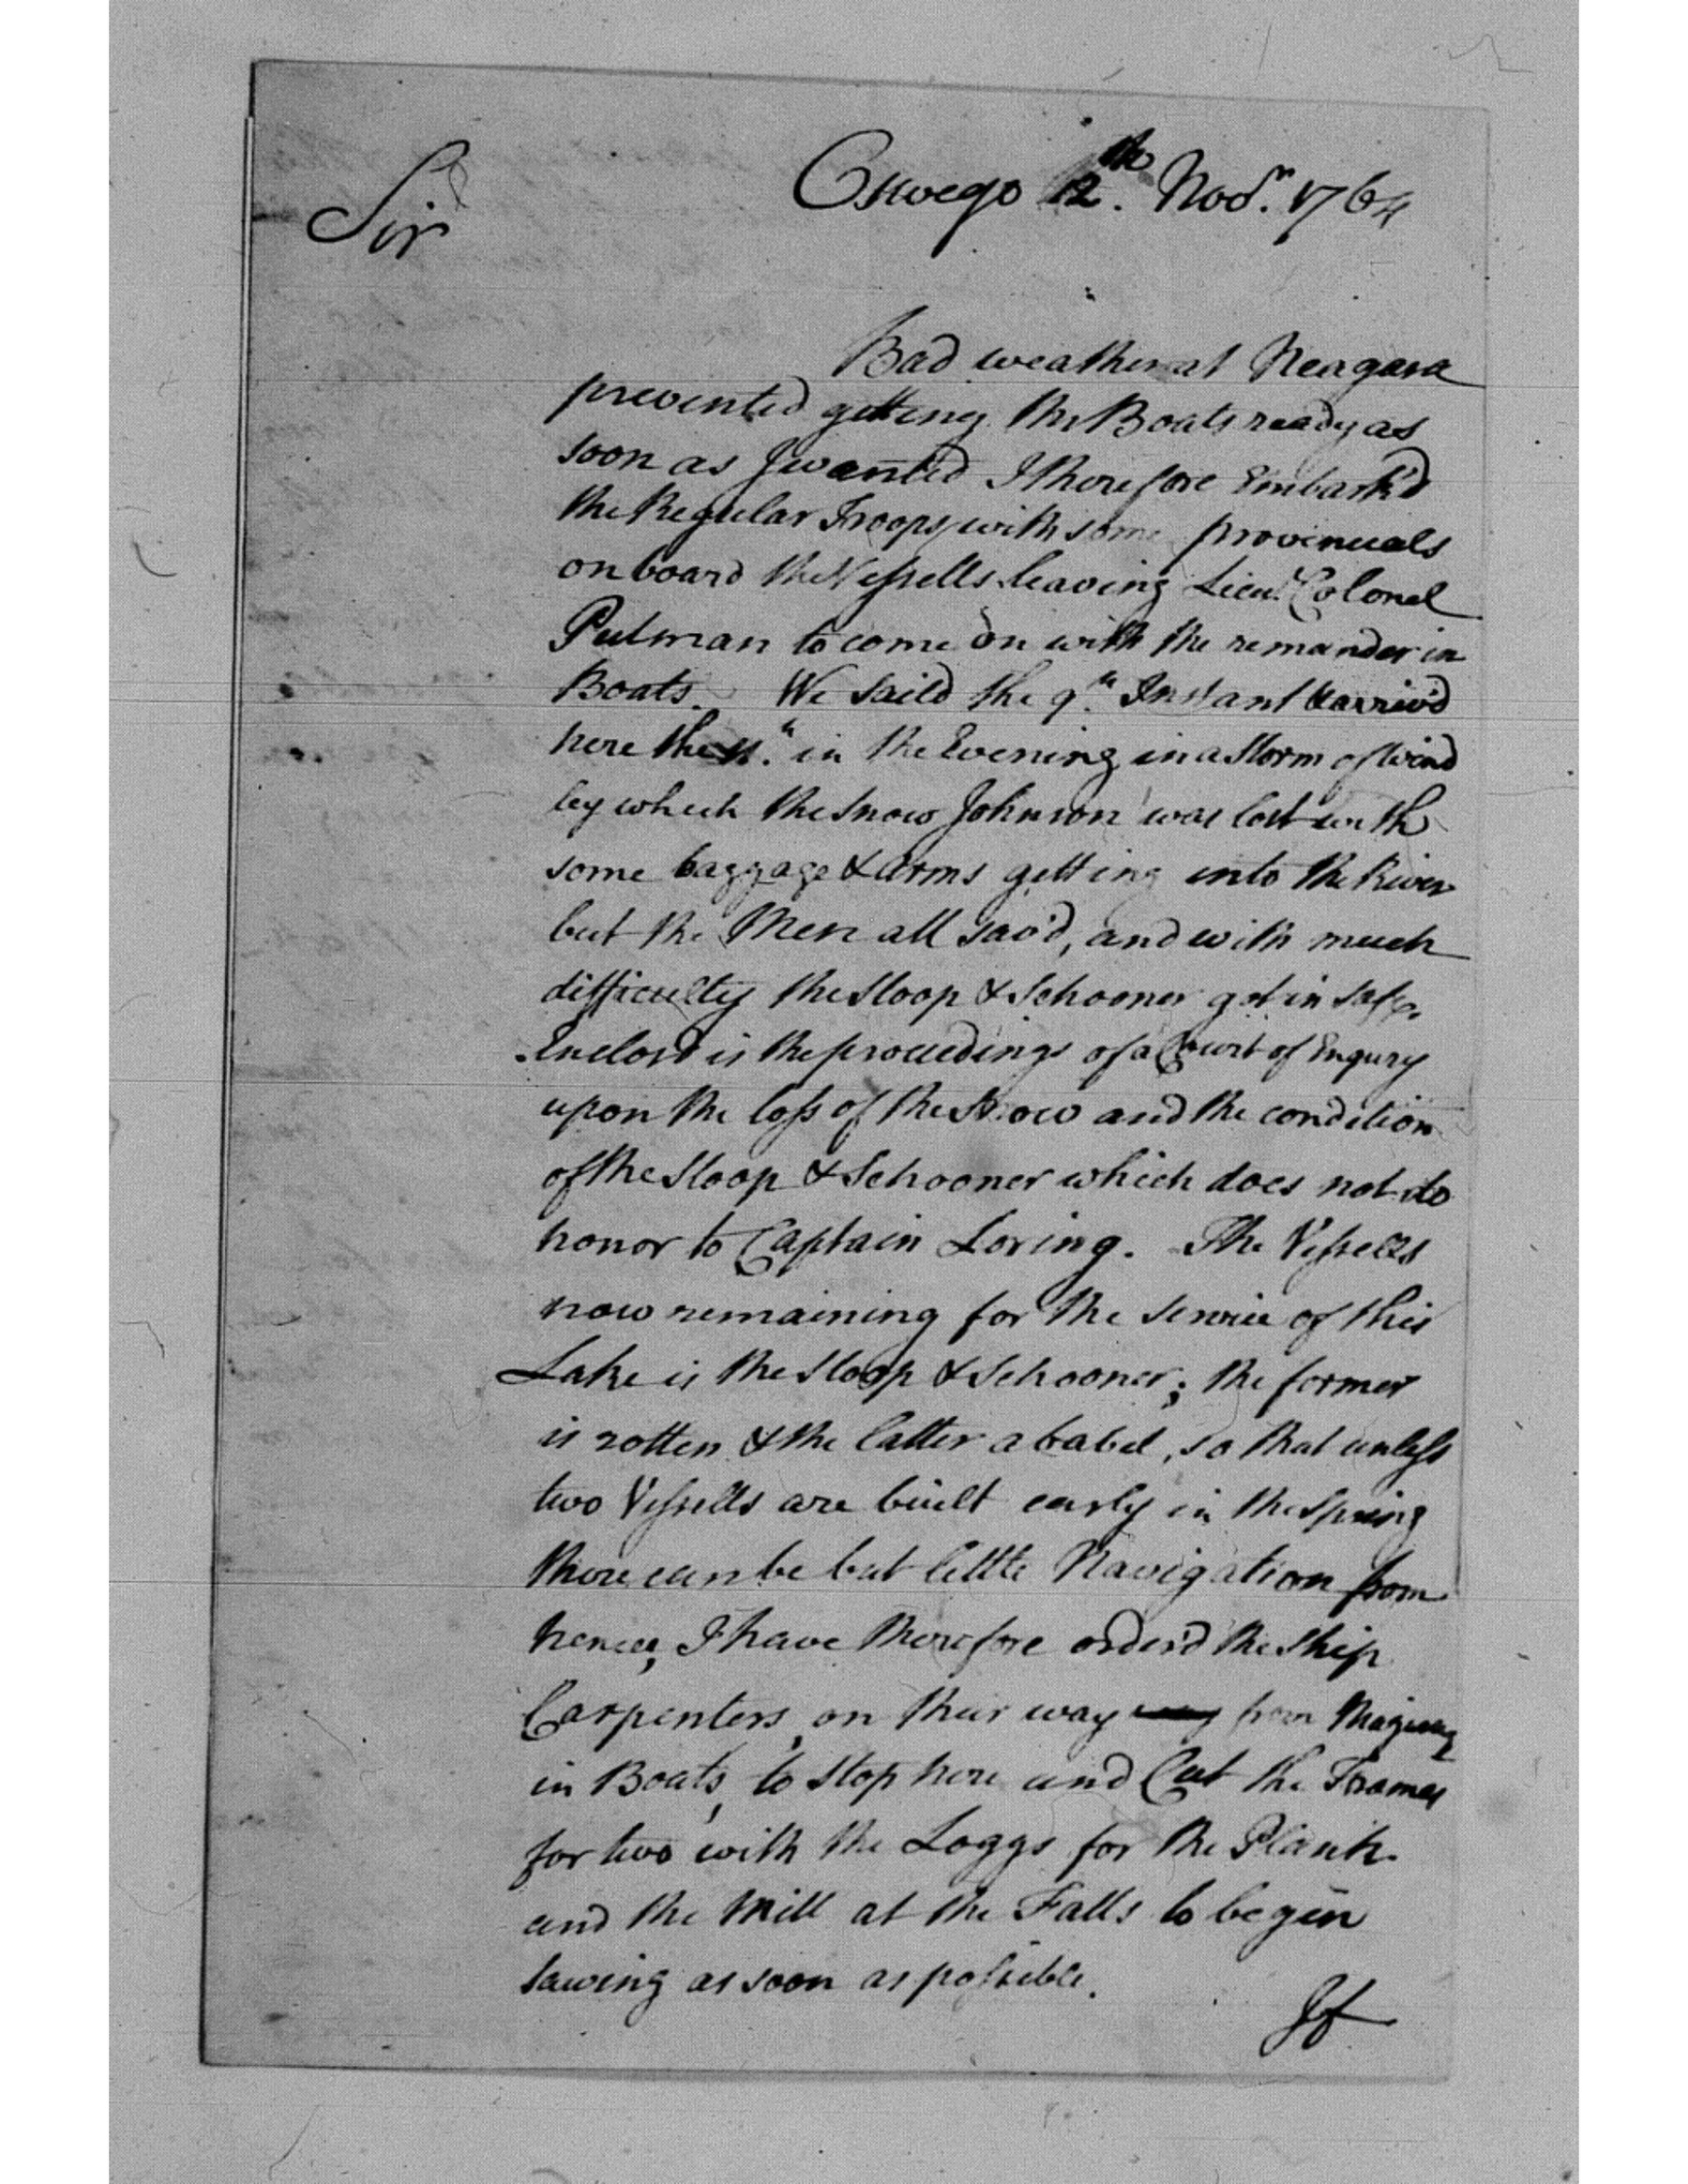 Oswego 12.th Nov.r 1764
Sir
Bad weather at Neagara
prevented getting the Boats ready as
soon as I wanted I therefore Embark'd
the Regular Troops with some provincials
on board the Vessells leaving Lieu.t Colonel
Putman to come on with the remander in
Boats. We saild the 9.th Instant & arriv'd
here the 11.th in the Evening in a storm of Wind
by which the snow Johnson was lost with
some baggage & arms getting into the River
but the Men all sav'd, and with much
difficulty the Sloop & Schooner got in safe.
Enclos'd is the proceedings of a Court of Enqury
upon the loss of the Snow and the condition
of the Sloop & Schooner which does not do
honor to Captain Loring. The Vessells
now remaining for the service of this
Lake is the Sloop & Schooner; the former
is rotten & the latter a babel, so that unless
two Vessells are built early in the Spring
there can be but little Navigation from
hence, I have therefore order'd the Ship
Carpenters, on their way from
in Boats, to stop here and Cut the Frames
for two with the Loggs for the Plank
and the Mill at the Falls to begin
sawing as soon as possible.
If